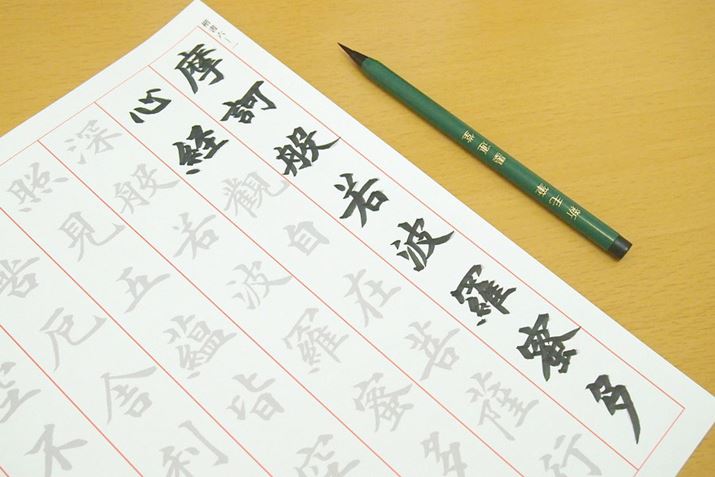 摩訶般若波羅蜜多
心経觀自在菩薩行
深般若波羅蜜多
照見五蘊皆空
苦厄舎利
空不